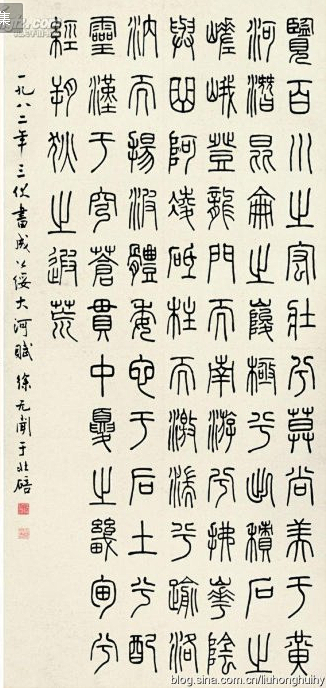 覽百川之宏壯兮莫尚美于黃
河潛昆侖之峻極兮出積石之
嵯峨登龍門而南游兮拂華陰
與曲阿凌砥柱而激湍兮踰洛
汭而揚波體委它于后土兮配
靈漢于穹蒼貫中夏之畿甸兮
經朔狄之遐荒
一九八二年三伏書成公綏大河賦 徐无聞于北碚
集
blog.sina.com.cn/liuhonghuihy